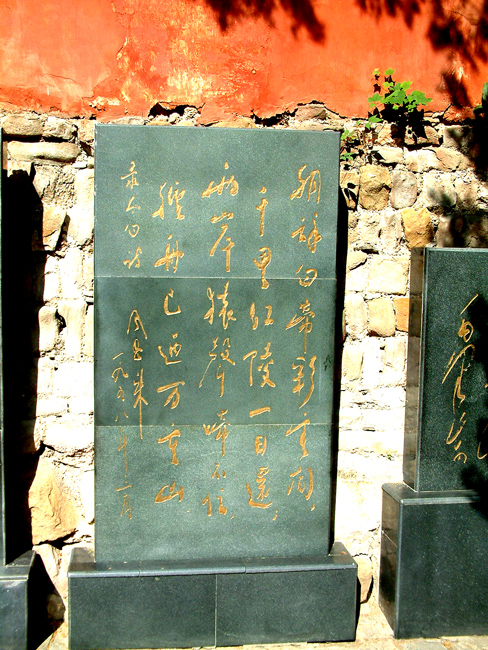 朝辞白帝彩雲间
千里江陵一日還
两岸猿聲啼不住
輕舟已過万重山
录太白诗
周恩来
一九五八年 月